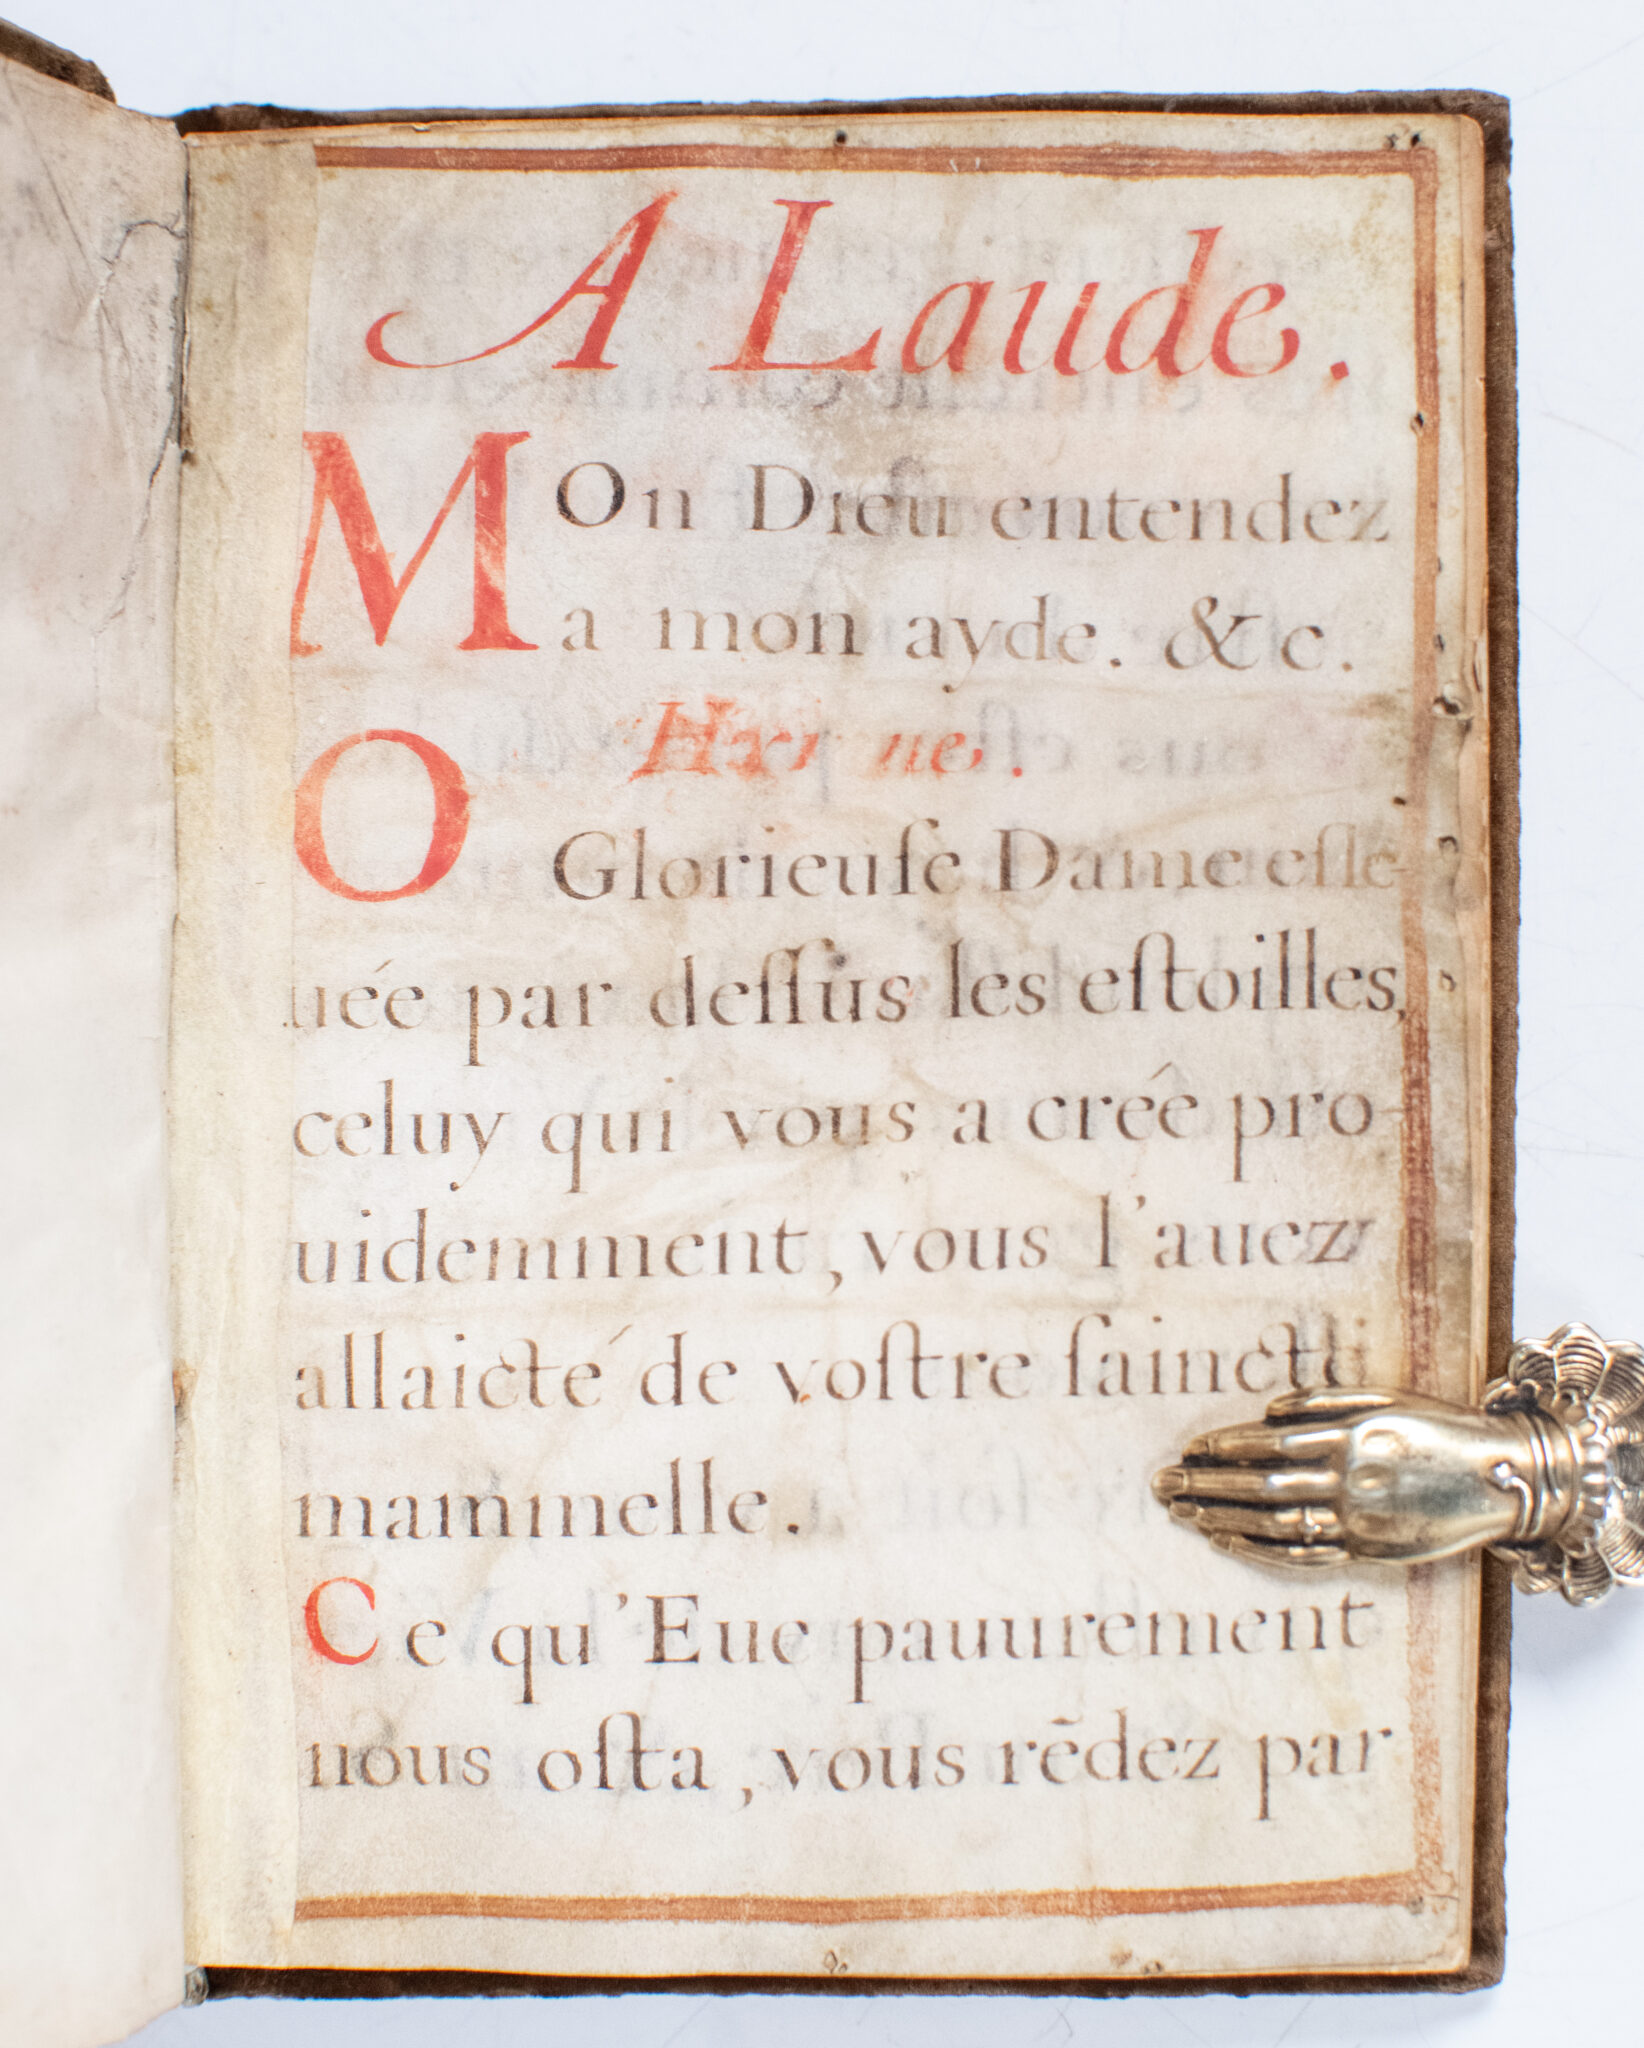 A Laude.
MOn Dieu entendez
a mon ayde. &c.
O Glorieuſe Dame eſle-
uée par deſſus les eſtoilles,
celuy qui vous a crée pro-
uidemment, vous l'auez
allaicté de voſtre
mammelle.
Ce qu'Eue pauurement
nous oſta, vous rēdez par